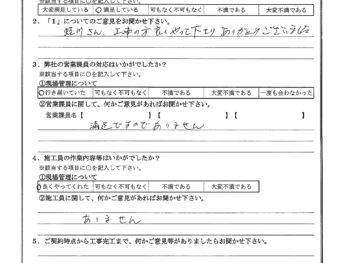 ※該当する項目に○を記入して下さい。
大変満足している ○満足している 可もなく不可もなく 不満である 大変不満である
2．「1」についてのご意見をお聞かせ下さい。
さん、工事の方よくやって下さり ありがとうございました
3．弊社の営業課員の対応はいかがでしたか？
※該当する項目に○を記入して下さい。
①現場管理について
○行き届いていた 可もなく不可もなく 不満である 大変不満である 一度も会わなかった
②営業課員に関して、何かご意見があればお聞かせ下さい。
営業課員名【 】【 】【 】
満足ですのでありません
4．施工員の作業内容等はいかがでしたか？
※該当する項目に○を記入して下さい。
①現場管理について
○良くやってくれた 可もなく不可もなく 不満である 大変不満である
②施工員に関して、何かご意見があればお聞かせ下さい。
ありません
5．ご契約時点から工事完工まで、何かご意見等がありましたらお聞かせ下さい。